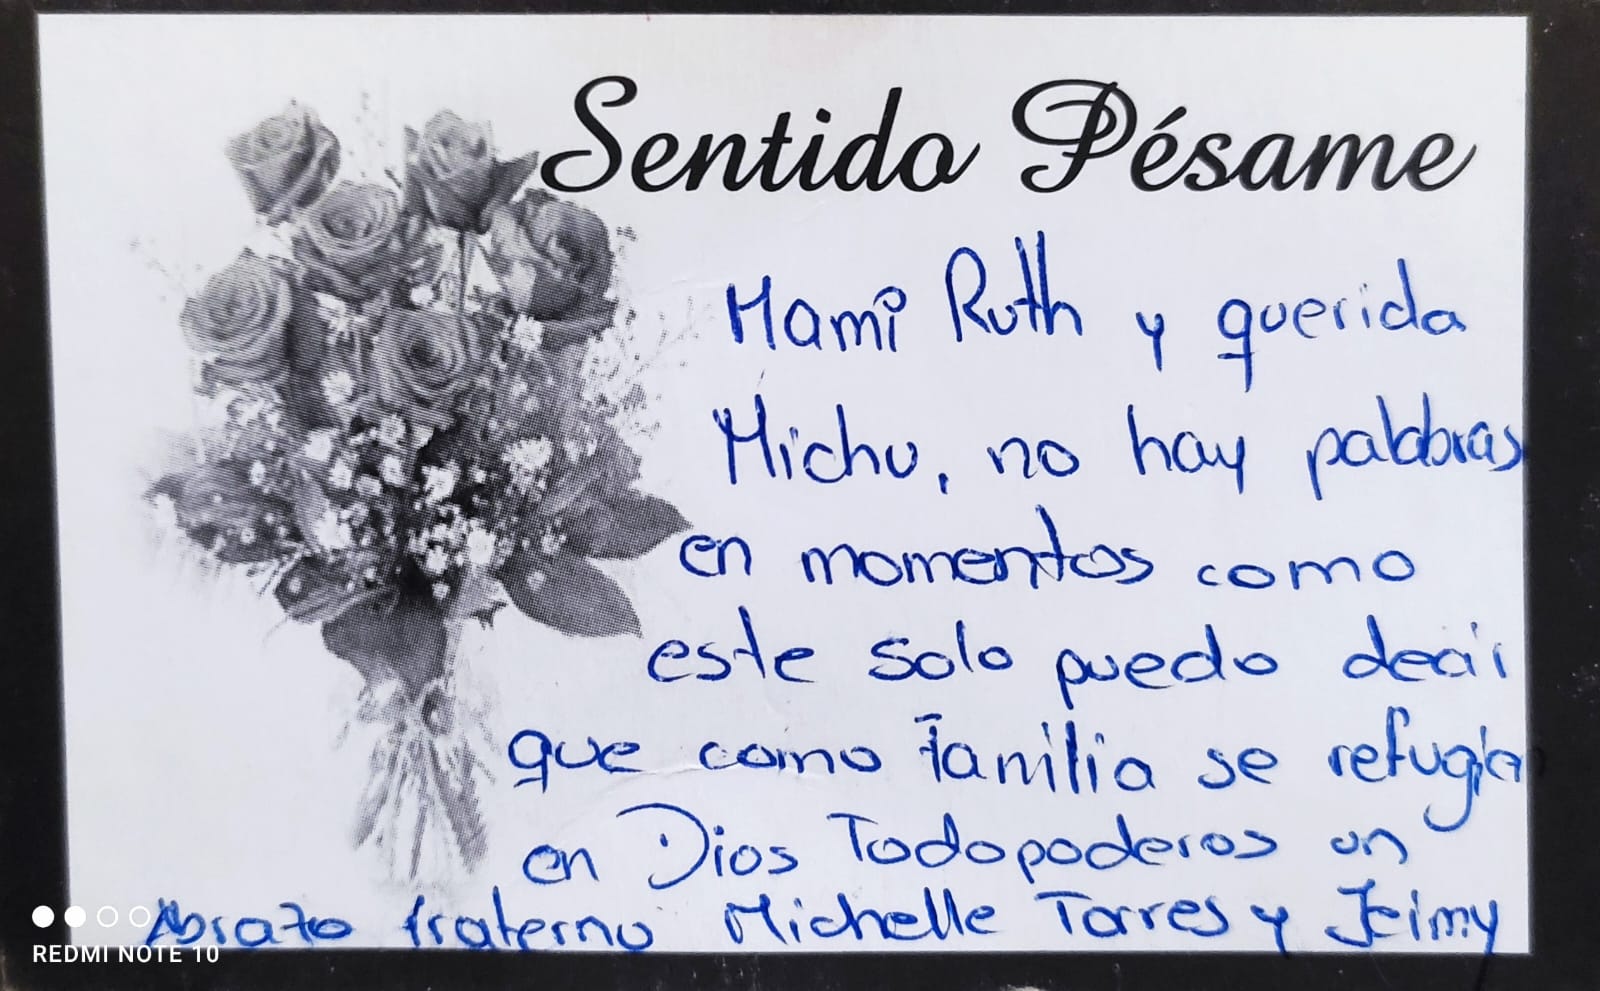 Sentido Pésame
Mami Ruth y querida
Michu, no hay palabras
en momentos como
este solo puedo decir
que como Familia se refugien
en Dios Todopoderoso un
Abrazo fraterno Michelle Torres y Jeimy
REDMI NOTE 10